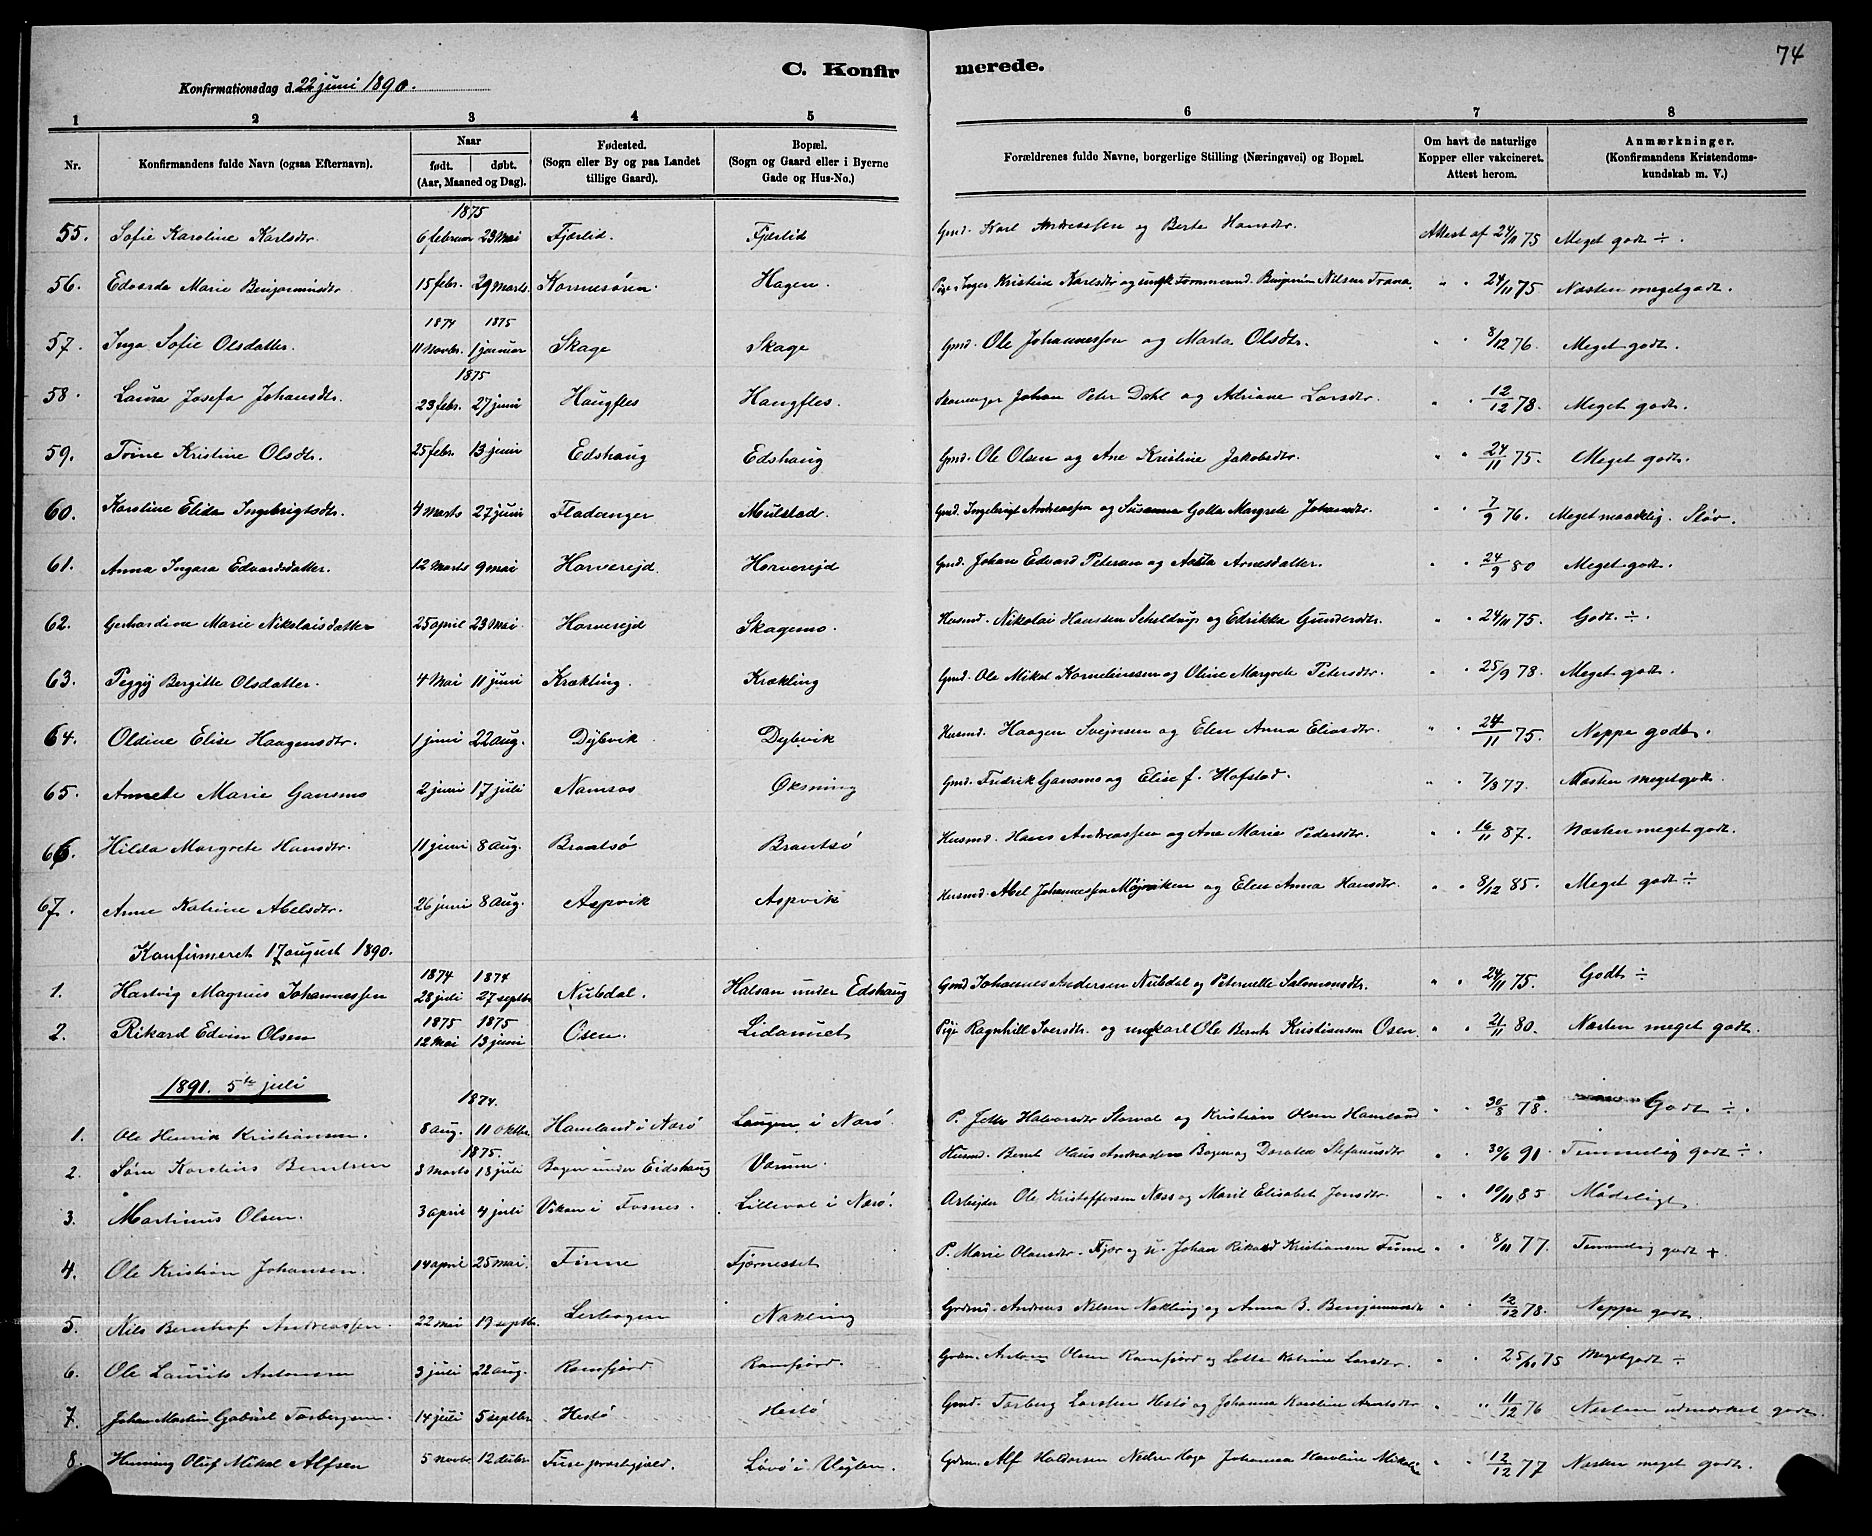 74
C. Konfirmerede.
Konfirmationsdag d. 22 juni 1890.
1 2 3 4 5 6 7 8
Nr. Konfirmandens fulde Navn (ogsaa Efternavn). Naar født. døbt. (Aar, Maaned og Dag). Fødested. (Sogn eller By og paa Landet tillige Gaard). Bopæl. (Sogn og Gaard eller i Byerne Gade og Hus-No.) Forældrenes fulde Navne, borgerlige Stilling (Næringsvei) og Bopæl. Om havt de naturlige Kopper eller vakcineret. Attest herom. Anmærkninger. (Konfirmandens Kristendomskundskab m. V.)
1875
55. Sofie Karoline Karlsdtr. 6 februar 23 Mai Fjærlid. Fjærlid Gmd. Karl Andreassen og Berte Hansdtr. Attest af 24/11 75 Meget godt ÷.
56. Edvarda Marie Benjaminsdtr 15 febr. 29 Marts. Hagen. Pige Inger Kristine Karlsdtr og Benjamin Nilsen Frana. " " 24/11 75 Næsten meget godt.
1874 1875
57. Inga Sofie Olsdatter. 11 Novbr. 1 januar Skage Skage Gmd. Ole Johannessen og Marta Olsdtr. " " 8/12 76. Meget godt.
1875
58. Laura Josefa Johansdtr. 23 febr. 27 juni Haugfles Haugfles. Johan Peter Dahl og Adriane Larsdtr. " " 12/12 78. Meget godt.
59. Trine Kristine Olsdtr. 25 febr. 13 juni Edshaug Edshaug Gmd. Ole Olsen og Ane Kristine Jakobsdtr. " " 24/11 75. Meget godt.
60. Karoline Elida Ingebrigtsdtr. 4 Marts 27 juni Fladanger Mulstad. Gmd. Ingebrigt Andreassen og Susanna Golla Margrete Johannsdtr. 7/9 76. Meget maadelig. Sløv.
61. Anna Ingara Edvardsdatter. 12 Marts 9 mai Horverejd. Horverejd Gmd. Johan Edvard Petersen og Arnesdatter. " " 24/9 80 Meget godt.
62. Gerhardine Marie Nikolaisdatter 25 april 23 Mai. Horverejd Skagemo. Husmd. Nikolai Hansen Scheldrup og Edrikka Gundersdtr. " " 24/11 75. Godt. ÷.
63. Peggy Bergitte Olsdatter. 4 Mai 11 juni Krækling. Krækling Gmd. Ole Mikal Korneliussen og Oline Margrete Petersdtr. " " 25/9 78. Meget godt.
64. Oldine Elise Haagensdtr. 1 juni 22 aug. Dybvik Dybvik Husmd. Haagen Svejnsen og Elen Anna Eliasdtr. " " 24/11 75. Neppe godt.
65. Annete Marie Gansmo 2 juni 17 juli Namsos Øksning Gmd. Fredrik Gansmo og Elise f. Hofstad. " " 7/8 77. Næsten meget godt.
66. Hilda Margrete Hansdtr. 11 juni 8 aug. Brantsø Brantsø Husmd. Hans Andreassen og Ane Marie Pedersdtr. " " 16/11 87. Næsten meget godt.
67. Anne Katrine Abelsdtr. 26 juni 8 aug. Aspvik Aspvik Husmd. Abel Johannessen Møjviken og Elen Anna Hansdtr. " " 8/12 85. Meget godt ÷
Konfirmeret 17 august 1890.
1874 1874
1. Hartvig Magnus Johannessen 28 juli 27 septbr Nubdal. Halsan under Edshaug Gmd Johannes Andersen Nubdal og Peternelle Salomonsdtr. " " 24/11 75. Godt ÷
1875 1875
2. Rikard Edvin Olsen 12 Mai 13 juni Osen. Lidamuet Pige Ragnhill Iversdtr. og ungkarl Ole Bernt Kristiansen Osen " " 21/11 80. Næsten meget godt.
1891. 5te juli
1874.
1. Ole Henrik Kristiansen. 8 aug. 11 oktbr. Hamland i Nærø i Nærø. P. Jette Halvorsdtr og Kristian Olsen Hamland " " 30/8 78. Godt ÷.
1875.
2. Søren Karelius Berntsen 3 Marts 18 juli Bogen under Eidshaug Værum. Husmd. Bernt Hans Andreassen Bogen og Dorotea Stefanusdtr " " 30/6 91. Temmelig godt ÷.
3. Martinus Olsen. 3 april 4 juli Vikan i Fosnes. Lilleval i Nærø. Arbejder Ole Kristoffersen Næss og Marit Elisabet Jonsdtr. " " 10/11 85 Mådeligt
4. Ole Kristian Johansen. 14 april 25 mai. Finne Fjørnesset P. Marie Olausdtr. Fjær og u. Johan Rikard Kristiansen Finne " " 8/11 77. Temmelig godt +.
5. Nils Bernhof Andreassen 22 mai 19 septbr. Lerbogen Nakling Grdmd. Andreas Nilsen Nakling og Anna B. Benjaminsdtr " " 12/12 78. Neppe godt.
6. Ole Laurits Antonsen 3 juli 22 aug. Ramfjord Ramfjord. Grdm. Anton Olsen Ramfjord og Lotte Katrine Larsdtr. " " 25/10 75 Meget godt ÷
7. Johan Martin Gabriel Torbergsen. 14 juli 5 septbr. Hestø Hestø Gmd. Torberg Larssen Hestø og Johanna Karoline Arntsdtr " " 11/12 76 Næsten udmærket godt.
8. Henning Oluf Mikal Alfsen 5 novbr. 12 decbr. præstegjæld. Løvø i Vigten. Grdm. Alf Haldorsen Nedre Haga Johanna Karoline " " 12/12 77 Næsten meget godt.